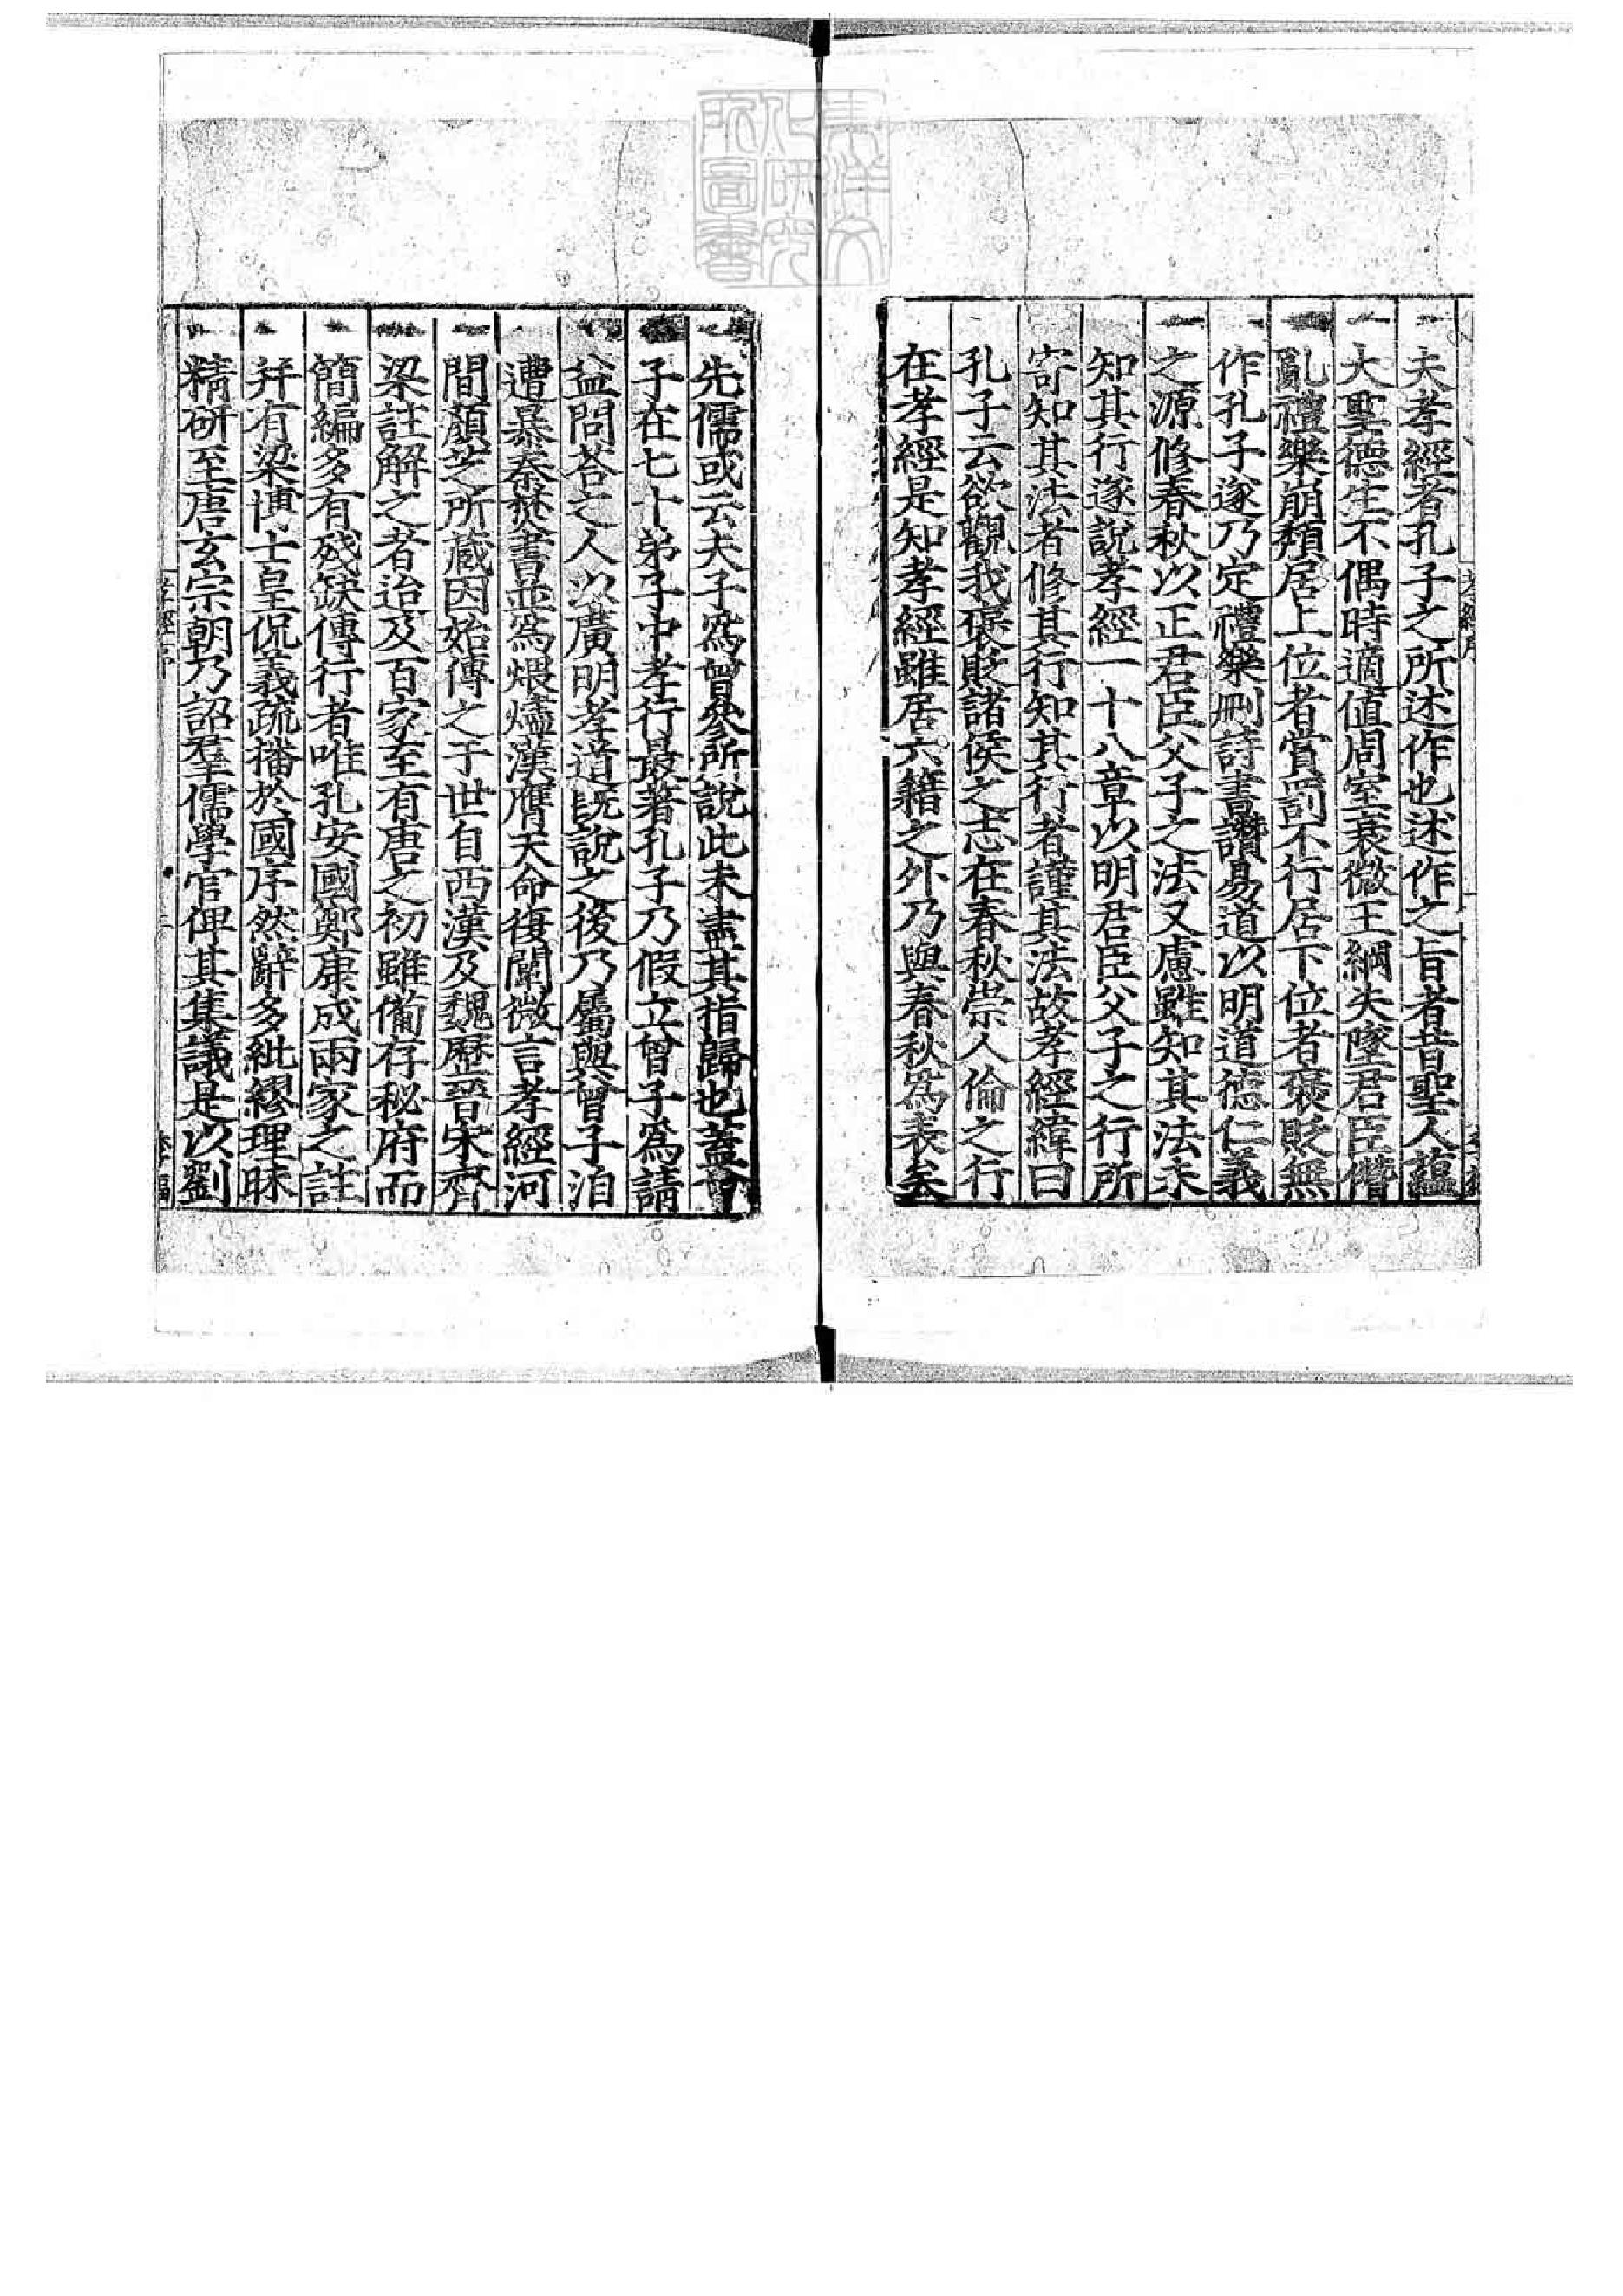 夫孝經者孔子之所述作也述作之旨者昔聖人蘊
大聖德生不偶時適值周室衰微王綱失墜君臣僭
亂禮樂崩頹居上位者賞罰不行居下位者襃貶無
作孔子遂乃定禮樂刪詩書讚易道以明道德仁義
之源修春秋以正君臣父子之法又慮雖知其法未
知其行遂說孝經一十八章以明君臣父子之行所
寄知其法者修其行知其行者謹其法故孝經緯曰
孔子云欲觀我襃貶諸侯之志在春秋崇人倫之行
在孝經是知孝經雖居六籍之外乃與春秋為表矣
先儒或云夫子為曾參所說此未盡其指歸也蓋曾
子在七十弟子中孝行最著孔子乃假立曾子為請
益問荅之人以廣明孝道旣說之後乃屬與曾子洎
遭暴秦焚書並為煨燼漢膺天命復闡微言孝經河
間顏芝所藏因始傳之于世自西漢及魏歷晉宋齊
梁註解之者迨及百家至有唐之初雖備存秘府而
簡編多有殘缺傳行者唯孔安國鄭康成兩家之註
幷有梁博士皇侃義疏播於國序然辭多紕繆理昧
精研至唐玄宗朝乃詔羣儒學官俾其集議是以劉
孝經序
東洋文化研究所圖書